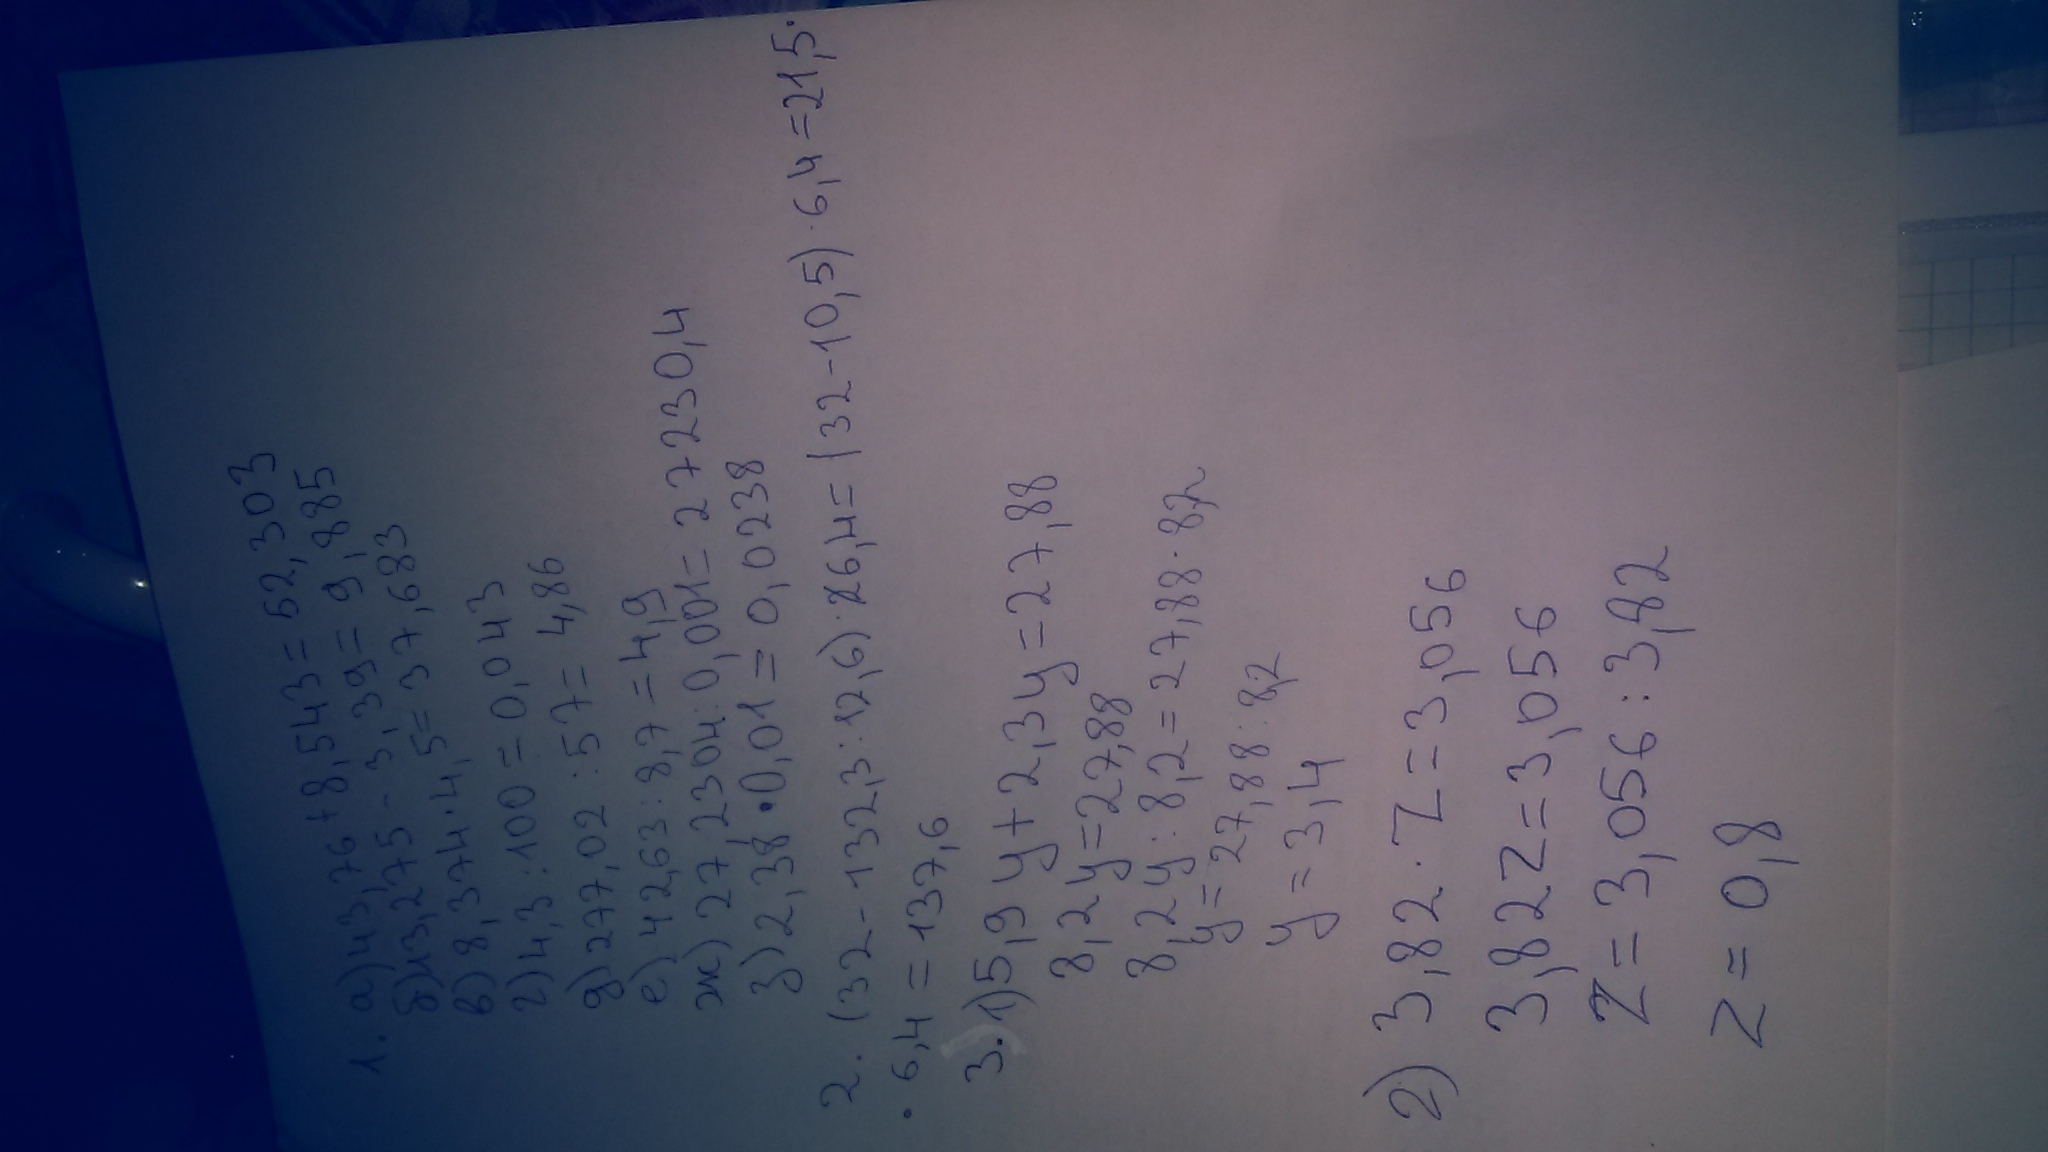 1. а) 43,76 + 8,543 = 52,303
б) 13,275 - 3,39 = 9,885
в) 8,374 · 4,5 = 37,683
г) 4,3 : 100 = 0,043
д) 277,02 : 57 = 4,86
е) 42,63 : 8,7 = 4,9
ж) 27,2304 : 0,001 = 27230,4
з) 2,38 · 0,01 = 0,0238
2. (32 - 132,3 : 12,6) · 6,4 = (32 - 10,5) · 6,4 = 21,5 ·
· 6,4 = 137,6
3. 1) 5,9 y + 2,3 y = 27,88
8,2 y = 27,88
8,2 y : 8,2 = 27,88 · 8,2
y = 27,88 : 8,2
y = 3,4
2) 3,82 · Z = 3,056
3,82 Z = 3,056
Z = 3,056 : 3,82
Z = 0,8